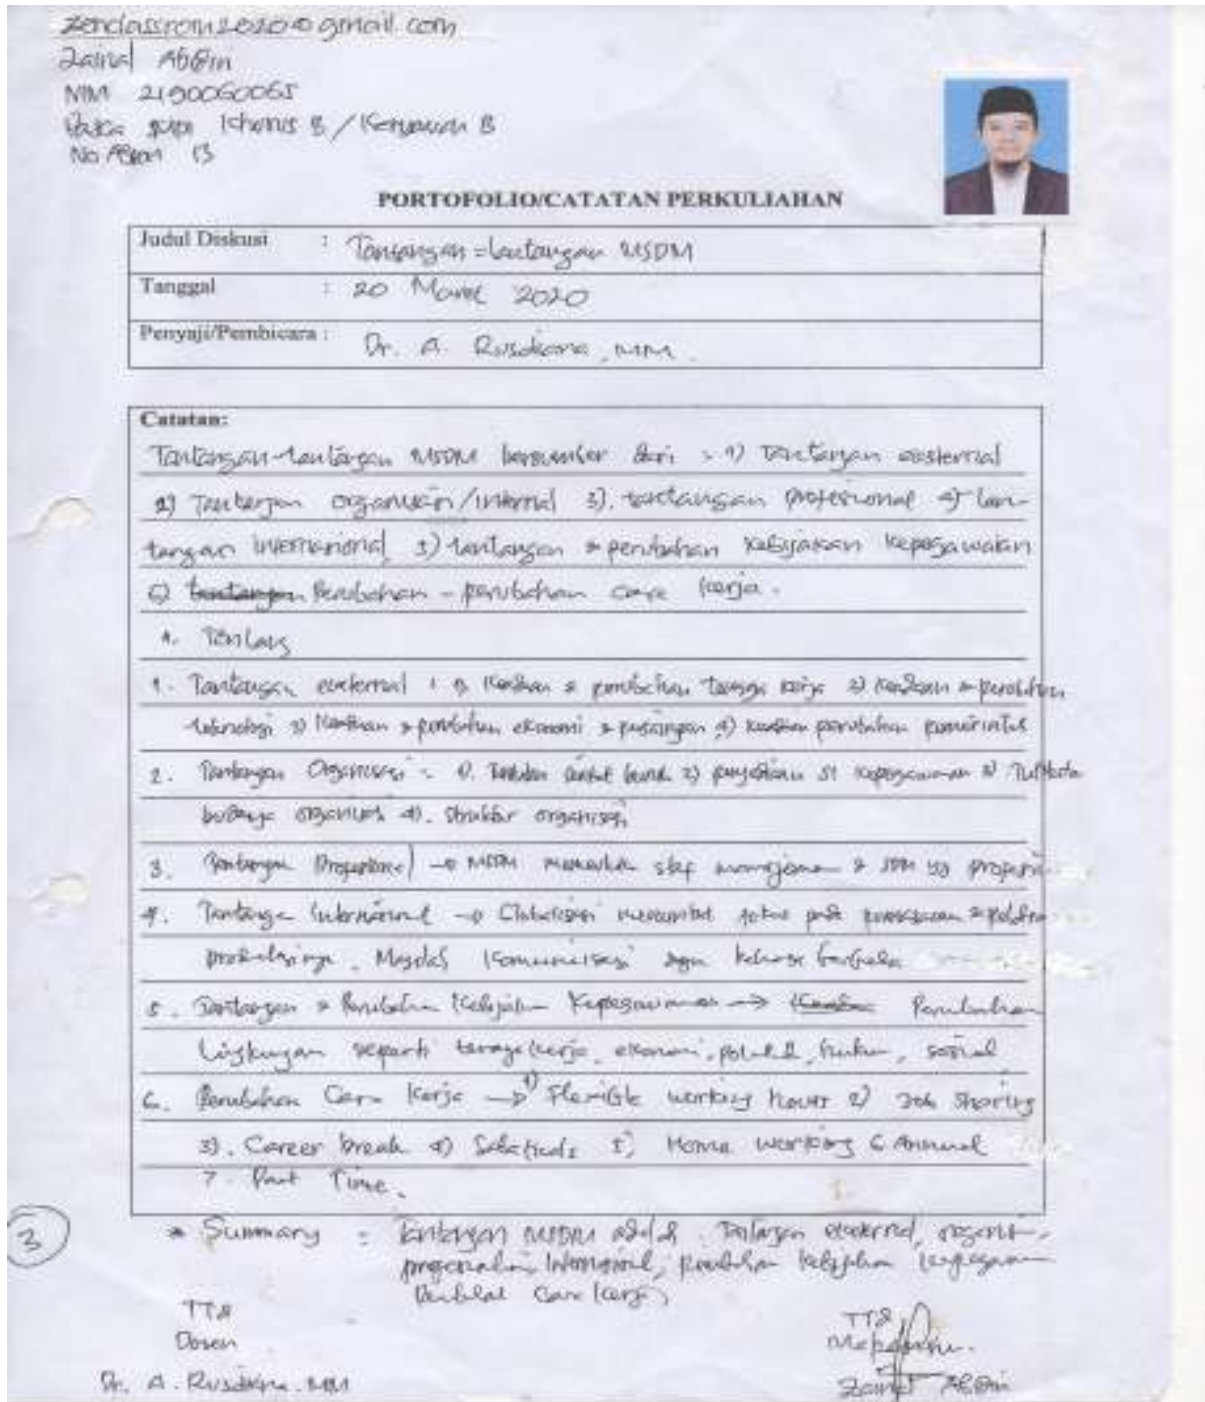 zenclassrom2020@gmail.com
Zainal Abidin
NIM 2190060065
Pasca 
No Absen 13
PORTOFOLIO/CATATAN PERKULIAHAN
Judul Diskusi : Tantangan=tantangan MSDM
Tanggal : 20 Maret 2020
Penyaji/Pembicara : Dr. A. Rusdiana, MM.
Catatan:
Tantangan-tantangan MSDM bersumber dari : 1) Tantangan eksternal
2) Tantangan organisasi/internal 3). tantangan profesional 4) tan-
tangan internasional 5) tantangan & perubahan kebijakan kepegawaian
6) tantangan Perubahan - perubahan cara kerja.
1. Tantangan eksternal : 1) Keadaan & perubahan tenaga kerja 2) Keadaan & perubahan
teknologi 3) Keadaan & perubahan ekonomi & 4) perubahan
2. Tantangan Organisasi : 1). 2) SI kepegawaian 3)
budaya organisasi 4). struktur organisasi
3. Tantangan Profesional → MSDM staf & SDM yg
4. Tantangan Internasional → Globalisasi pada
Komunikasi dgn bahasa berbeda
5. Tantangan & Perubahan Kebijakan Kepegawaian → Perubahan
Lingkungan seperti tenaga kerja, ekonomi, politik, hukum, sosial
6. Perubahan Cara Kerja → 1) Flexible working hours 2) Job Sharing
3). Career break 4) Sabaticals 5) Home working 6 Annual
7. Part Time.
3
* Summary = Tantangan MSDM adalah Tantangan eksternal,
Internasional, perubahan kebijakan
cara kerja
TTD
Dosen
Dr. A. Rusdiana. MM
TTD
Mahasiswa.
Zainal Abidin